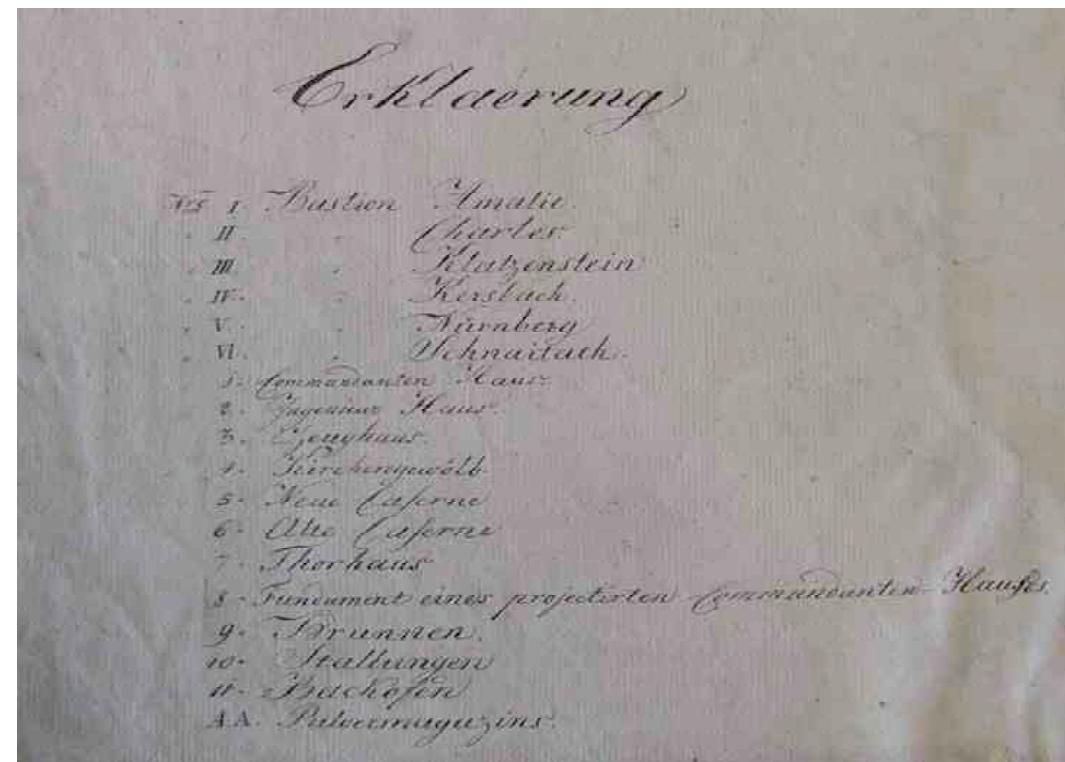 Erklaerung
Nro I. Bastion Amalie.
" II. " Charles.
" III. " Klatzenstein
" IV. " Kersbach.
" V. " Nürnberg
" VI. " Schnaitach.
1. Commandanten Haus.
2. Ingenieur Haus.
3. Zeughaus.
4. Kirchengewölb
5. Neue Caserne
6. Alte Caserne
7. Thorhaus
8. Fundament eines projectirten Commandanten-Hauses.
9. Brunnen.
10. Stallungen
11. Backofen
A.A. Pulvermagazins.